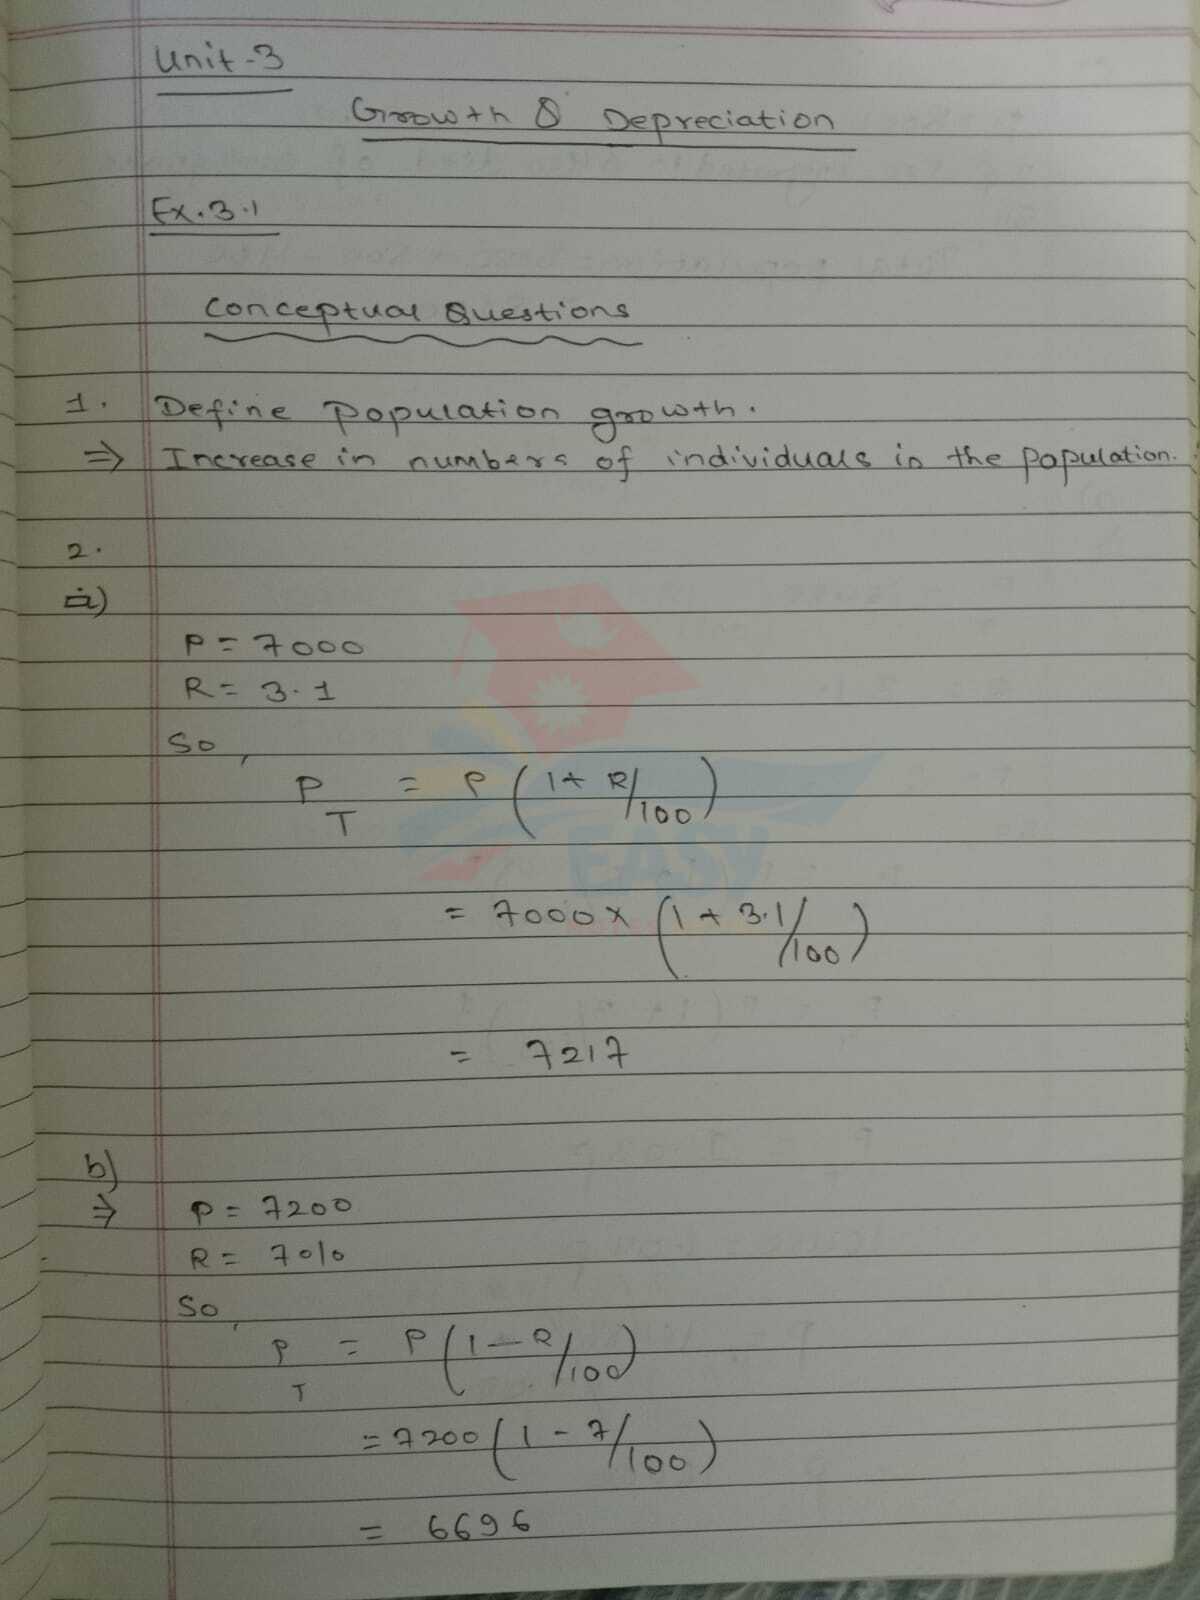 Unit-3
Growth & Depreciation
Ex.3.1
Conceptual Questions
1. Define Population growth.
⇒ Increase in numbers of individuals in the population.
2.
a)
P = 7000
R = 3.1
So,
P_T = P (1 + R/100)
= 7000 × (1 + 3.1/100)
= 7217
b)
⇒ P = 7200
R = 7%
So,
P_T = P (1 - R/100)
= 7200 (1 - 7/100)
= 6696
EASY